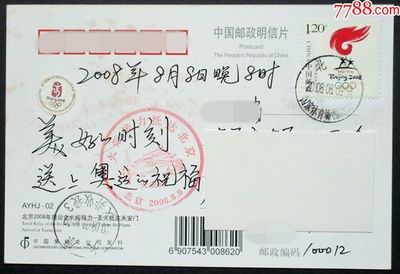 7788.com
中国邮政明信片
Postcard
The People's Republic of China
1.20元
Beijing 2008
2008年8月8日晚8时
美好的时刻
送上奥运的祝福
北京 2008.8.6
AYHJ-02
北京2008年奥运会火炬接力-圣火抵达天安门
中国邮政
6 907543 008620
邮政编码：100012